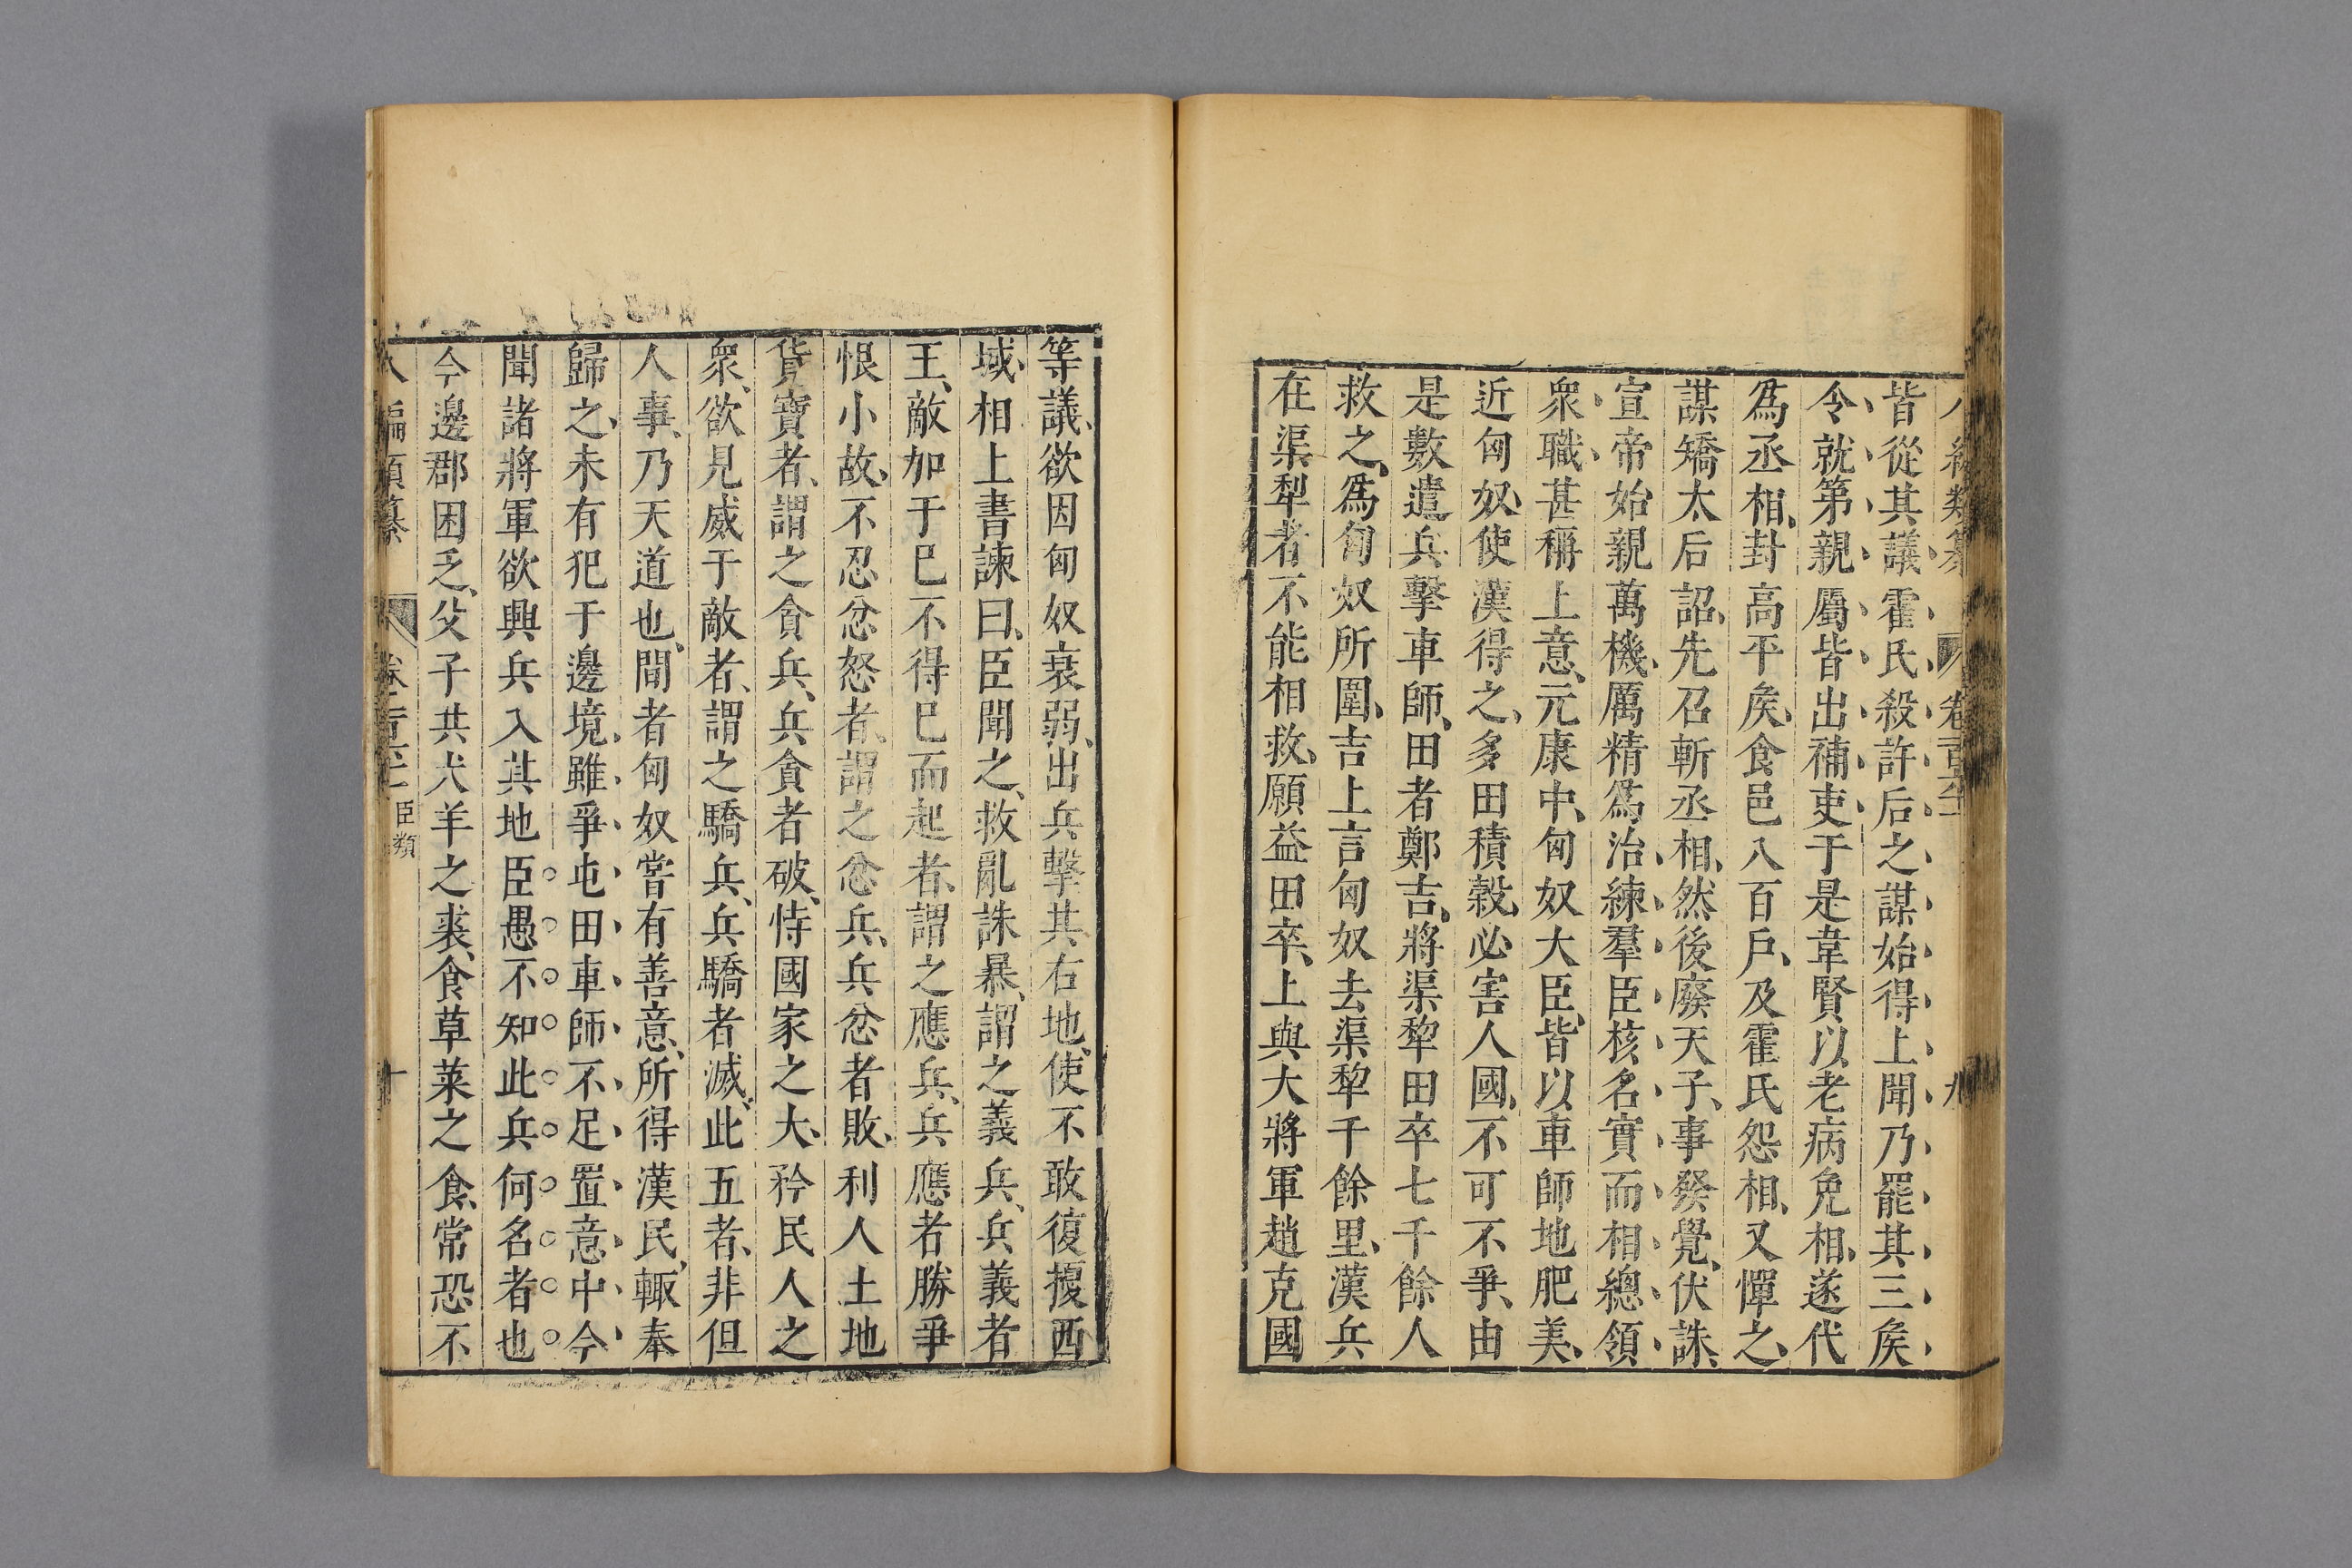 皆從其議、霍氏殺許后之謀始得上聞乃罷其三矦
令就第親屬皆出補吏于是韋賢以老病免相、遂代
爲丞相、封高平矦、食邑八百戶、及霍氏怨相、又憚之、
謀矯太后詔、先召斬丞相、然後廢天子、事發覺、伏誅、
宣帝始親萬機、厲精爲治練羣臣核名實而相總領
衆職、甚稱上意、元康中、匈奴大臣、皆以車師地肥美、
近匈奴、使漢得之、多田積穀、必害人國、不可不爭、由
是數遣兵擊車師、田者鄭吉、將渠犂田卒七千餘人
救之、爲匈奴所圍、吉上言匈奴去渠犂千餘里、漢兵
在渠犁者不能相救、願益田卒、上與大將軍趙充國
等議、欲因匈奴衰弱、出兵擊其右地、使不敢復擾西
域、相上書諫曰、臣聞之、救亂誅暴、謂之義兵、兵義者
王、敵加于巳不得巳而起者、謂之應兵、兵應者勝爭
恨小故、不忍忿怒者、謂之忿兵、兵忿者敗、利人土地
貨寶者、謂之貪兵、兵貪者破、恃國家之大、矜民人之
衆、欲見威于敵者、謂之驕兵、兵驕者滅、此五者、非但
人事、乃天道也、間者匈奴嘗有善意、所得漢民、輙奉
歸之、未有犯于邊境、雖爭屯田車師不足置意中今
聞諸將軍欲興兵入其地臣愚不知此兵何名者也
今邊郡困乏、父子共犬羊之裘、食草萊之食、常恐不
八編類纂 臣類 十